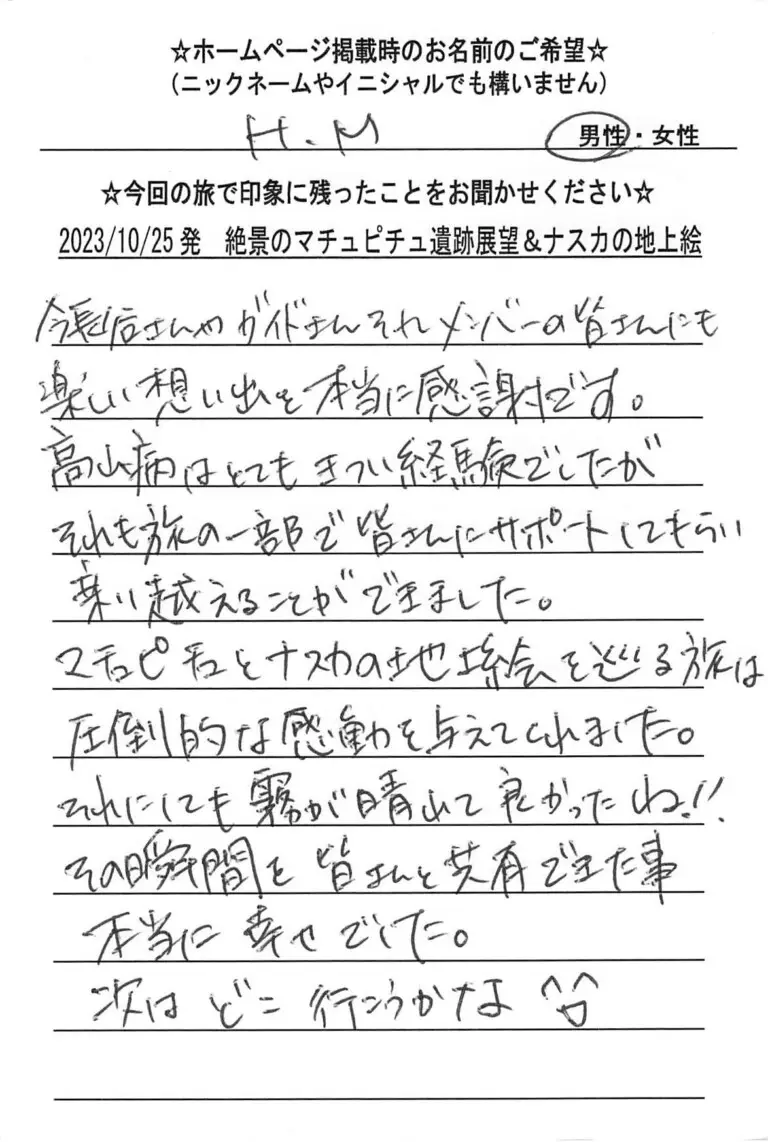 ☆ホームページ掲載時のお名前のご希望☆
(ニックネームやイニシャルでも構いません)
H.M 男性・女性
☆今回の旅で印象に残ったことをお聞かせください☆
2023/10/25発 絶景のマチュピチュ遺跡展望&ナスカの地上絵
さんやガイドさんそれメンバーの皆さんにも
楽しい想い出を本当に感謝です。
高山病はとてもきつい経験でしたが
それも旅の一部で皆さんにサポートしてもらい
乗り越えることができました。
マチュピチュとナスカの地上絵を巡る旅は
圧倒的な感動を与えてくれました。
それにしても霧が晴れて良かったね!!
その瞬間を皆さんと共有できた事
本当に幸せでした。
次はどこ行こうかなぁ ^^